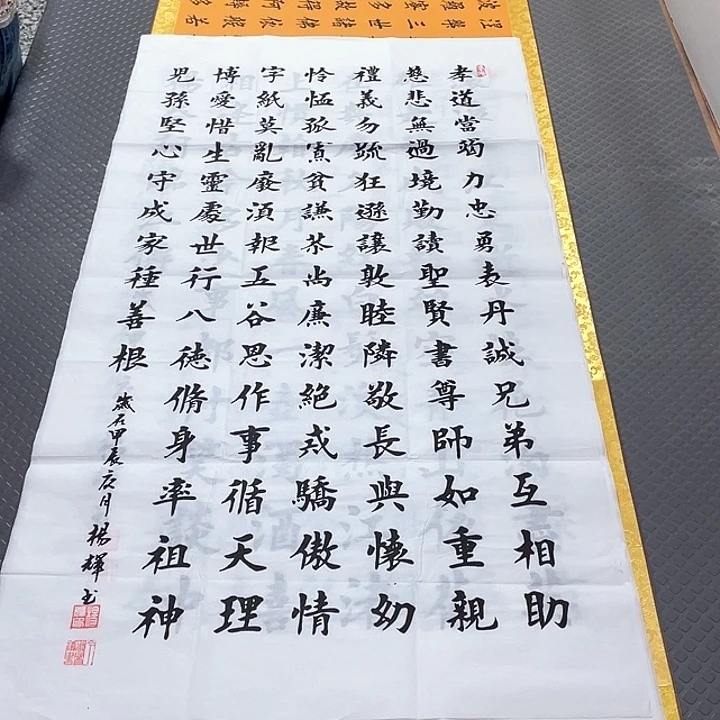 孝道當竭力忠勇表丹誠兄弟互相助
慈悲無過境勤讀聖賢書尊師如重親
禮義勿疏狂遜讓敦睦隣敬長與懷幼
怜恤孤寡貧謙恭尚廉潔絕戒驕傲情
字紙莫亂廢須報五谷恩作事循天理
博愛惜生靈處世行八德脩身率祖神
兒孫堅心守成家種善根
歲在甲辰月楊輝书